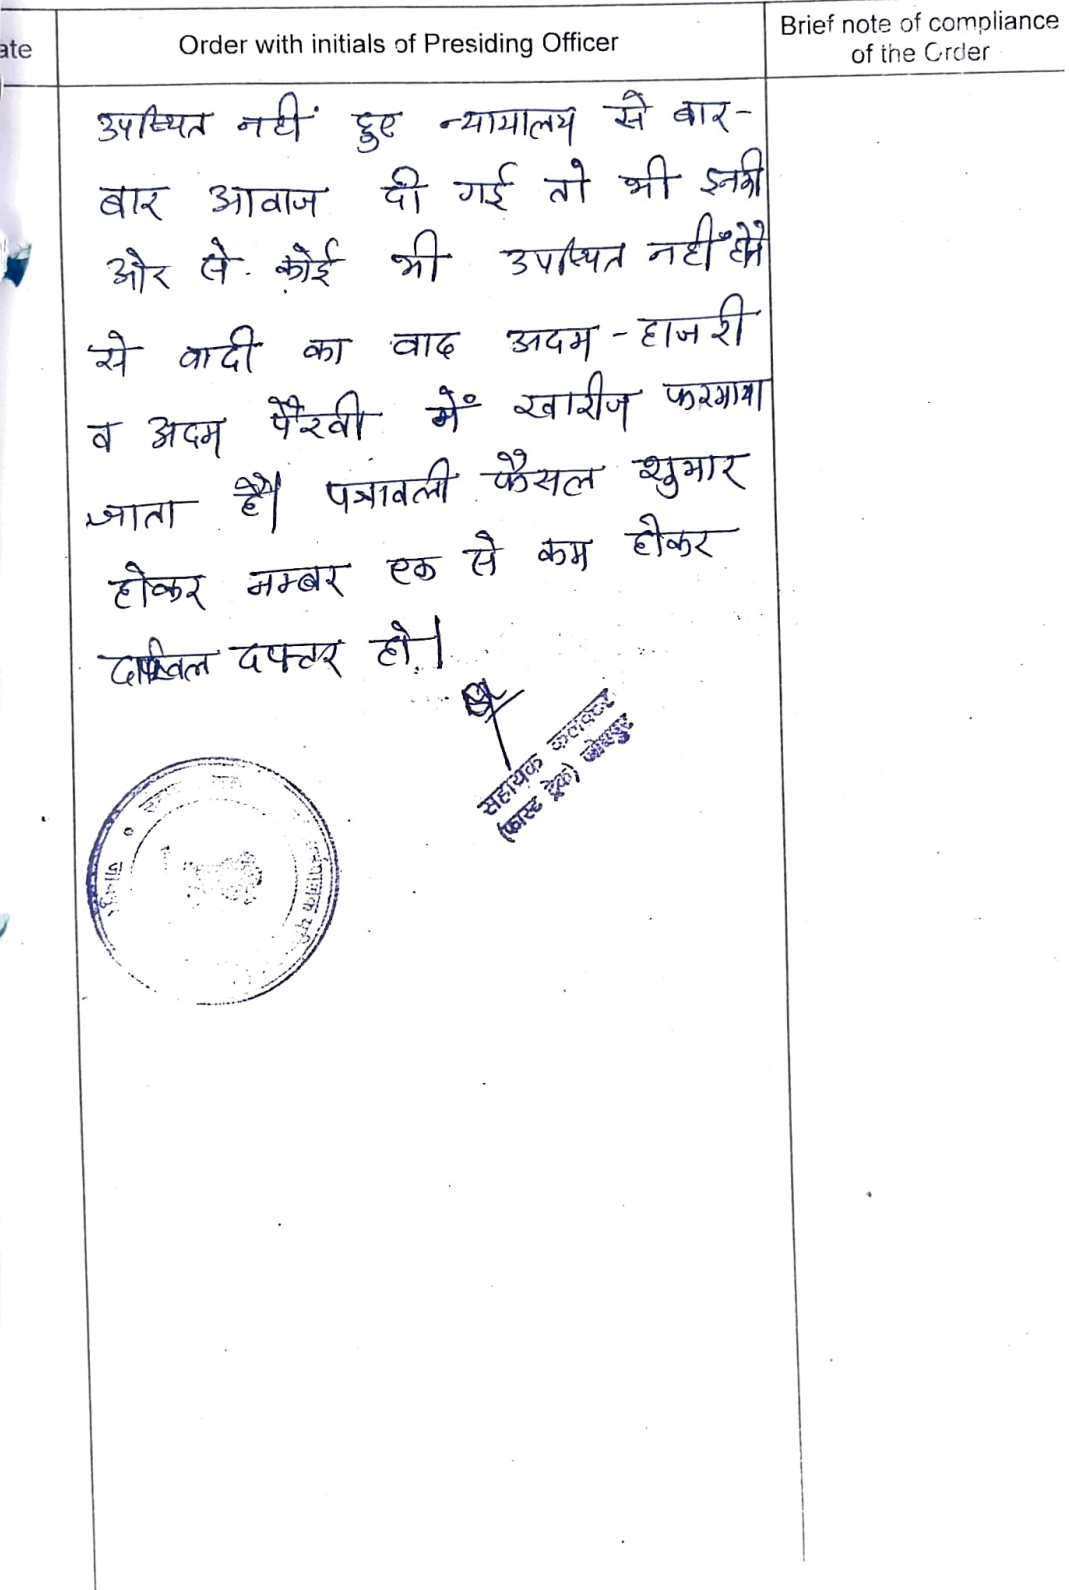 ate
Order with initials of Presiding Officer
Brief note of compliance
of the Order
उपस्थित नहीं हुए न्यायालय से बार-
बार आवाज दी गई तो भी इनकी
ओर से कोई भी उपस्थित नहीं होने
से वादी का वाद अदम - हाजरी
व अदम पैरवी में खारीज फरमाया
जाता है। पत्रावली फैसल शुमार
होकर नम्बर एक से कम होकर
दाखिल दफ्तर हो।
सहायक कलक्टर
(फास्ट ट्रेक) जोधपुर